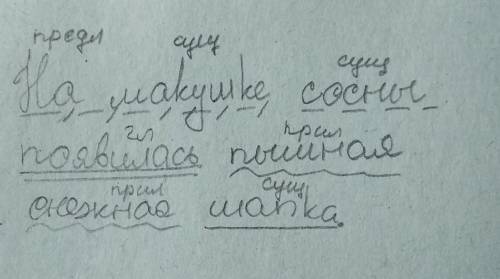 предл сущ сущ
На макушке сосны
гл прил
появилась пышная
прил сущ
снежная шапка.